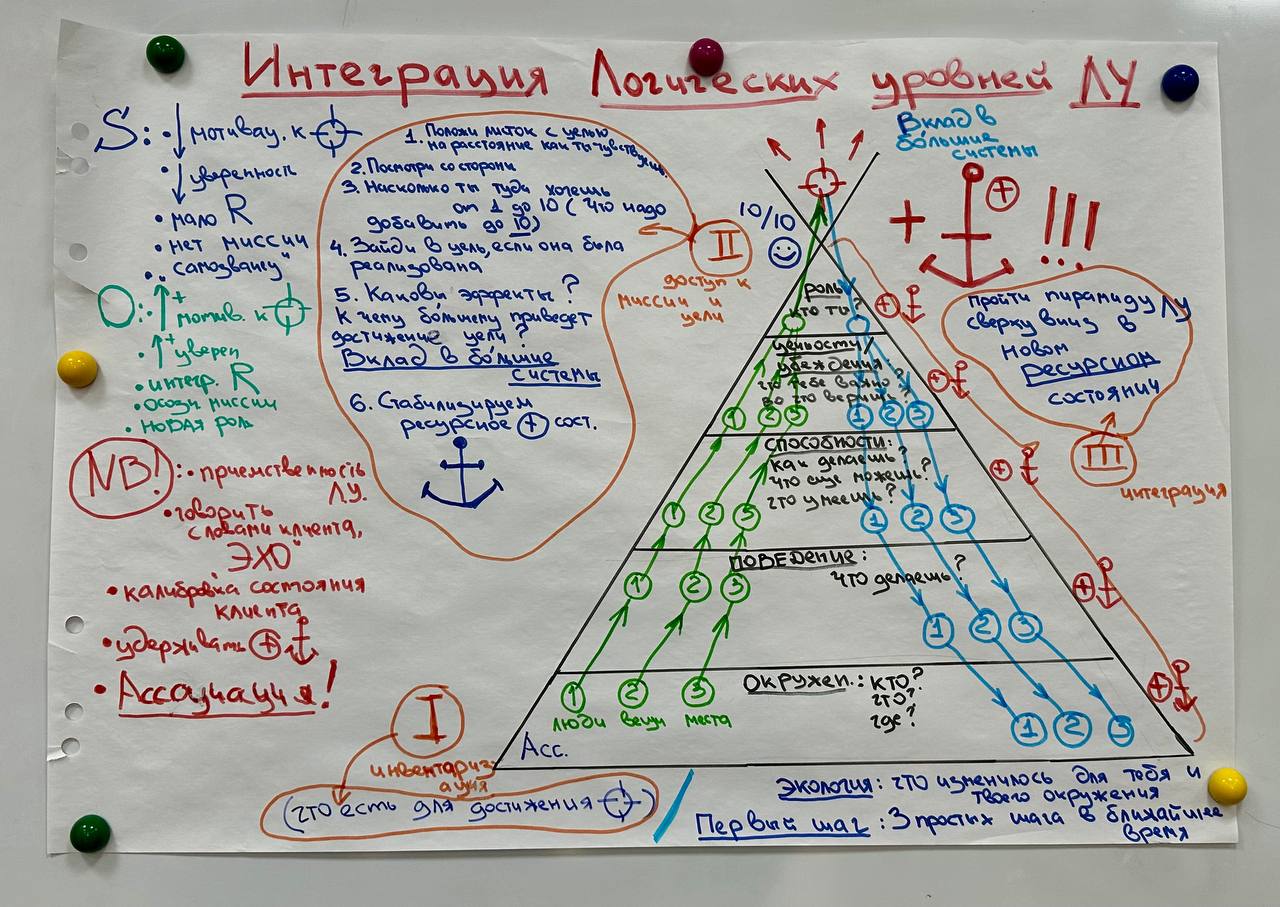 Интеграция Логических уровней ЛУ
S: • ↓ мотивац. к
• уверенность
• мало R
• нет миссии
• "самозванец"
O: • ↑+ мотив. к
• ↑+ уверен
• интегр. R
• осозн миссии
• новая роль
NB!: • приемственность
ЛУ.
• говорить
словами клиента,
"ЭХО"
• калибровка состояния
клиента
• удерживать +
• Ассоциация!
1. Положи листок с целью
на расстояние как ты чувствуешь.
2. Посмотри со стороны
3. Насколько ты туда хочешь
от 1 до 10 (что надо
добавить до 10)
4. Зайди в цель, если она была
реализована
5. Какови эффекты?
К чему бо́льшему приведет
достижение цели?
Вклад в бо́льшие
системы
6. Стабилизируем
ресурсное + сост.
II
доступ к
миссии и
цели
10/10
Вклад в
бо́льшие
системы
+ + !!!
Пройти пирамиду ЛУ
сверху вниз в
новом
ресурсном
состоянии
III
интеграция
роль
кто ты?
ценности/
убеждения
что тебе важно?
во что веришь?
1 2 3 1 2 3
способности:
как делаешь?
что еще можешь?
что умеешь?
1 2 3 1 2 3
ПОВЕДЕНИЕ:
что делаешь?
1 2 3 1 2 3
ОКРУЖЕН.: КТО?
что?
где?
1 2 3
люди вещи места
1 2 3
Асс.
+
+
+
+
+
I
инвентариз
ация
(что есть для достижения )
Экология: что изменилось для тебя и
твоего окружения
Первый шаг: 3 простых шага в ближайшее
время